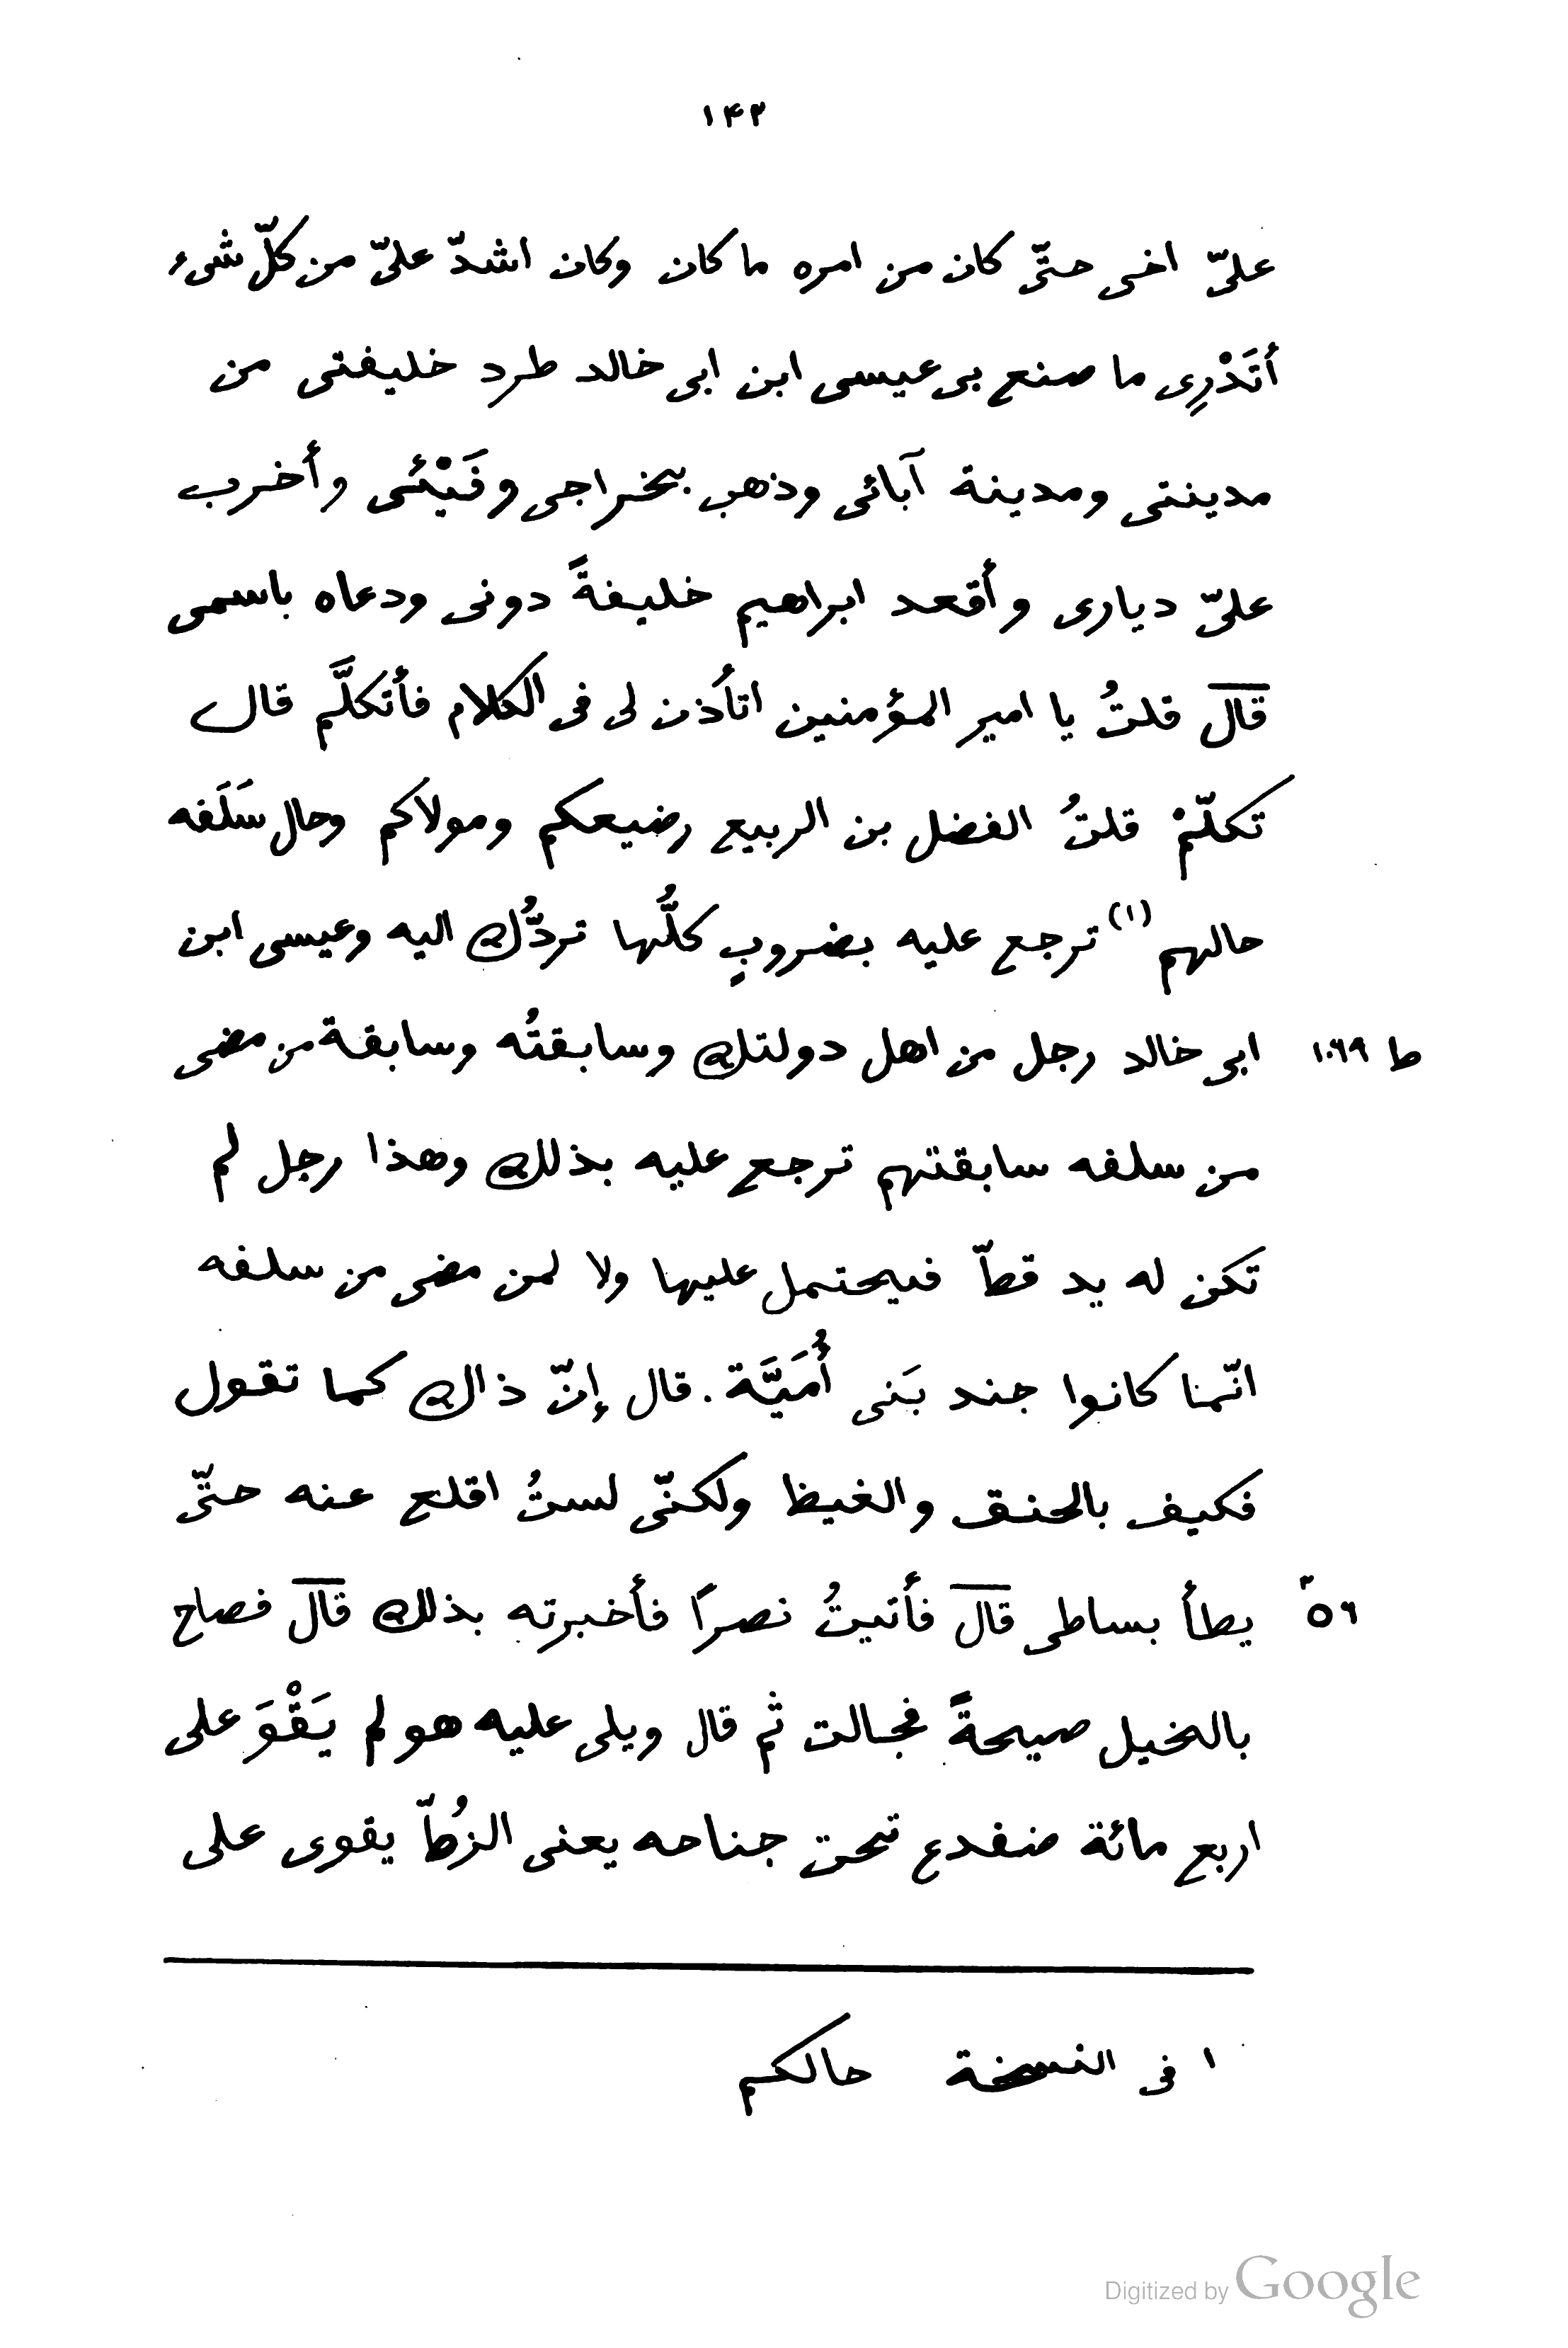 ١٤٢
علىّ اخى حتّى كان من امره ما كان وكان اشدّ علىّ من كلّ شىء
أتَدْرِى ما صنع بى عيسى ابن ابى خالد طرد خليفتى من
مدينتى ومدينة آبائى وذهب بخراجى وفَيْئى وأخرب
علىّ ديارى وأقعد ابراهيم خليفةً دونى ودعاه باسمى
قال قلتُ يا امير المؤمنين اتأذن لى فى الكلام فأتكلَّم قال
تكلّمْ قلتُ الفضل بن الربيع رضيعكم ومولاكم وحال سَلَفه
حالهم (١) ترجع عليه بضروبٍ كلُّها تردُّك اليه وعيسى ابن
ابى خالد رجل من اهل دولتك وسابقتُه وسابقة من مضى ط ١٠٦٩
من سلفه سابقتهم ترجع عليه بذلك وهذا رجل لم
تكن له يد قطّ فيحتمل عليها ولا لمن مضى من سلفه
انّما كانوا جند بَنى أُمَيَّة . قال إنّ ذاك كما تقول
فكيف بالحنق والغيظ ولكنّى لستُ اقلع عنه حتّى
يطأ بساطى قال فأتيتُ نصرًا فأخبرته بذلك قال فصاح ٥٦
بالخيل صيحةً فجالت ثم قال ويلى عليه هو لم يَقْوَ على
اربع مائة ضفدع تحت جناحه يعنى الزُطّ يقوى على
١ فى النسخة حالكم
Digitized by Google